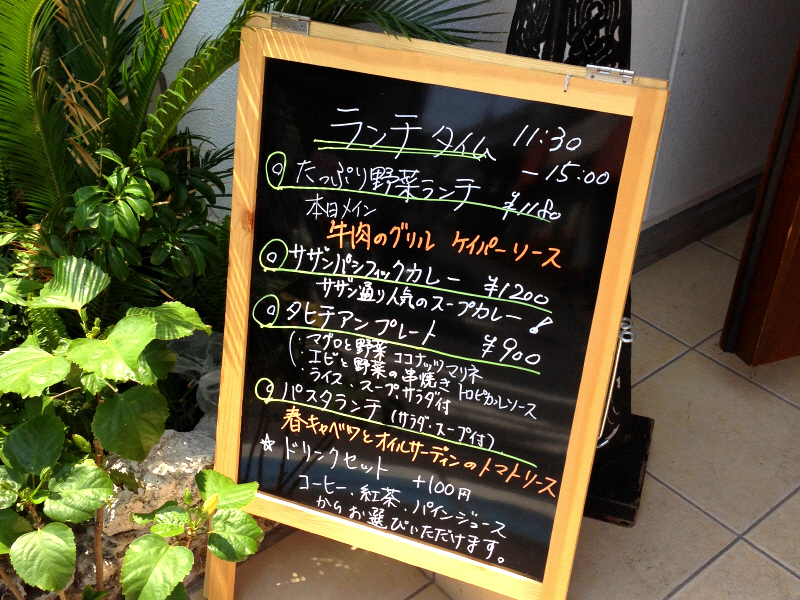 ランチタイム 11:30
- 15:00
◎ たっぷり野菜ランチ ¥1180
本日メイン
牛肉のグリル ケイパーソース
◎ サザンパシフィックカレー ¥1200
サザン通り人気のスープカレー!
◎ タヒチアンプレート ¥900
・マグロと野菜 ココナッツマリネ
・エビと野菜の串焼き トロピカルソース
・ライス、スープ、サラダ付
◎ パスタランチ (サラダ・スープ付)
春キャベツとオイルサーディンのトマトソース
☆ ドリークセット +100円
コーヒー、紅茶、パインジュース
からお選びいただけます。